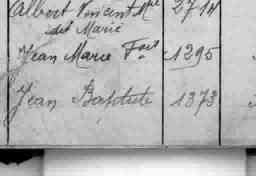 Albert Vincent Mie 2714
dit Marie
Jean Marie Fois 1295
Jean Baptiste 1373